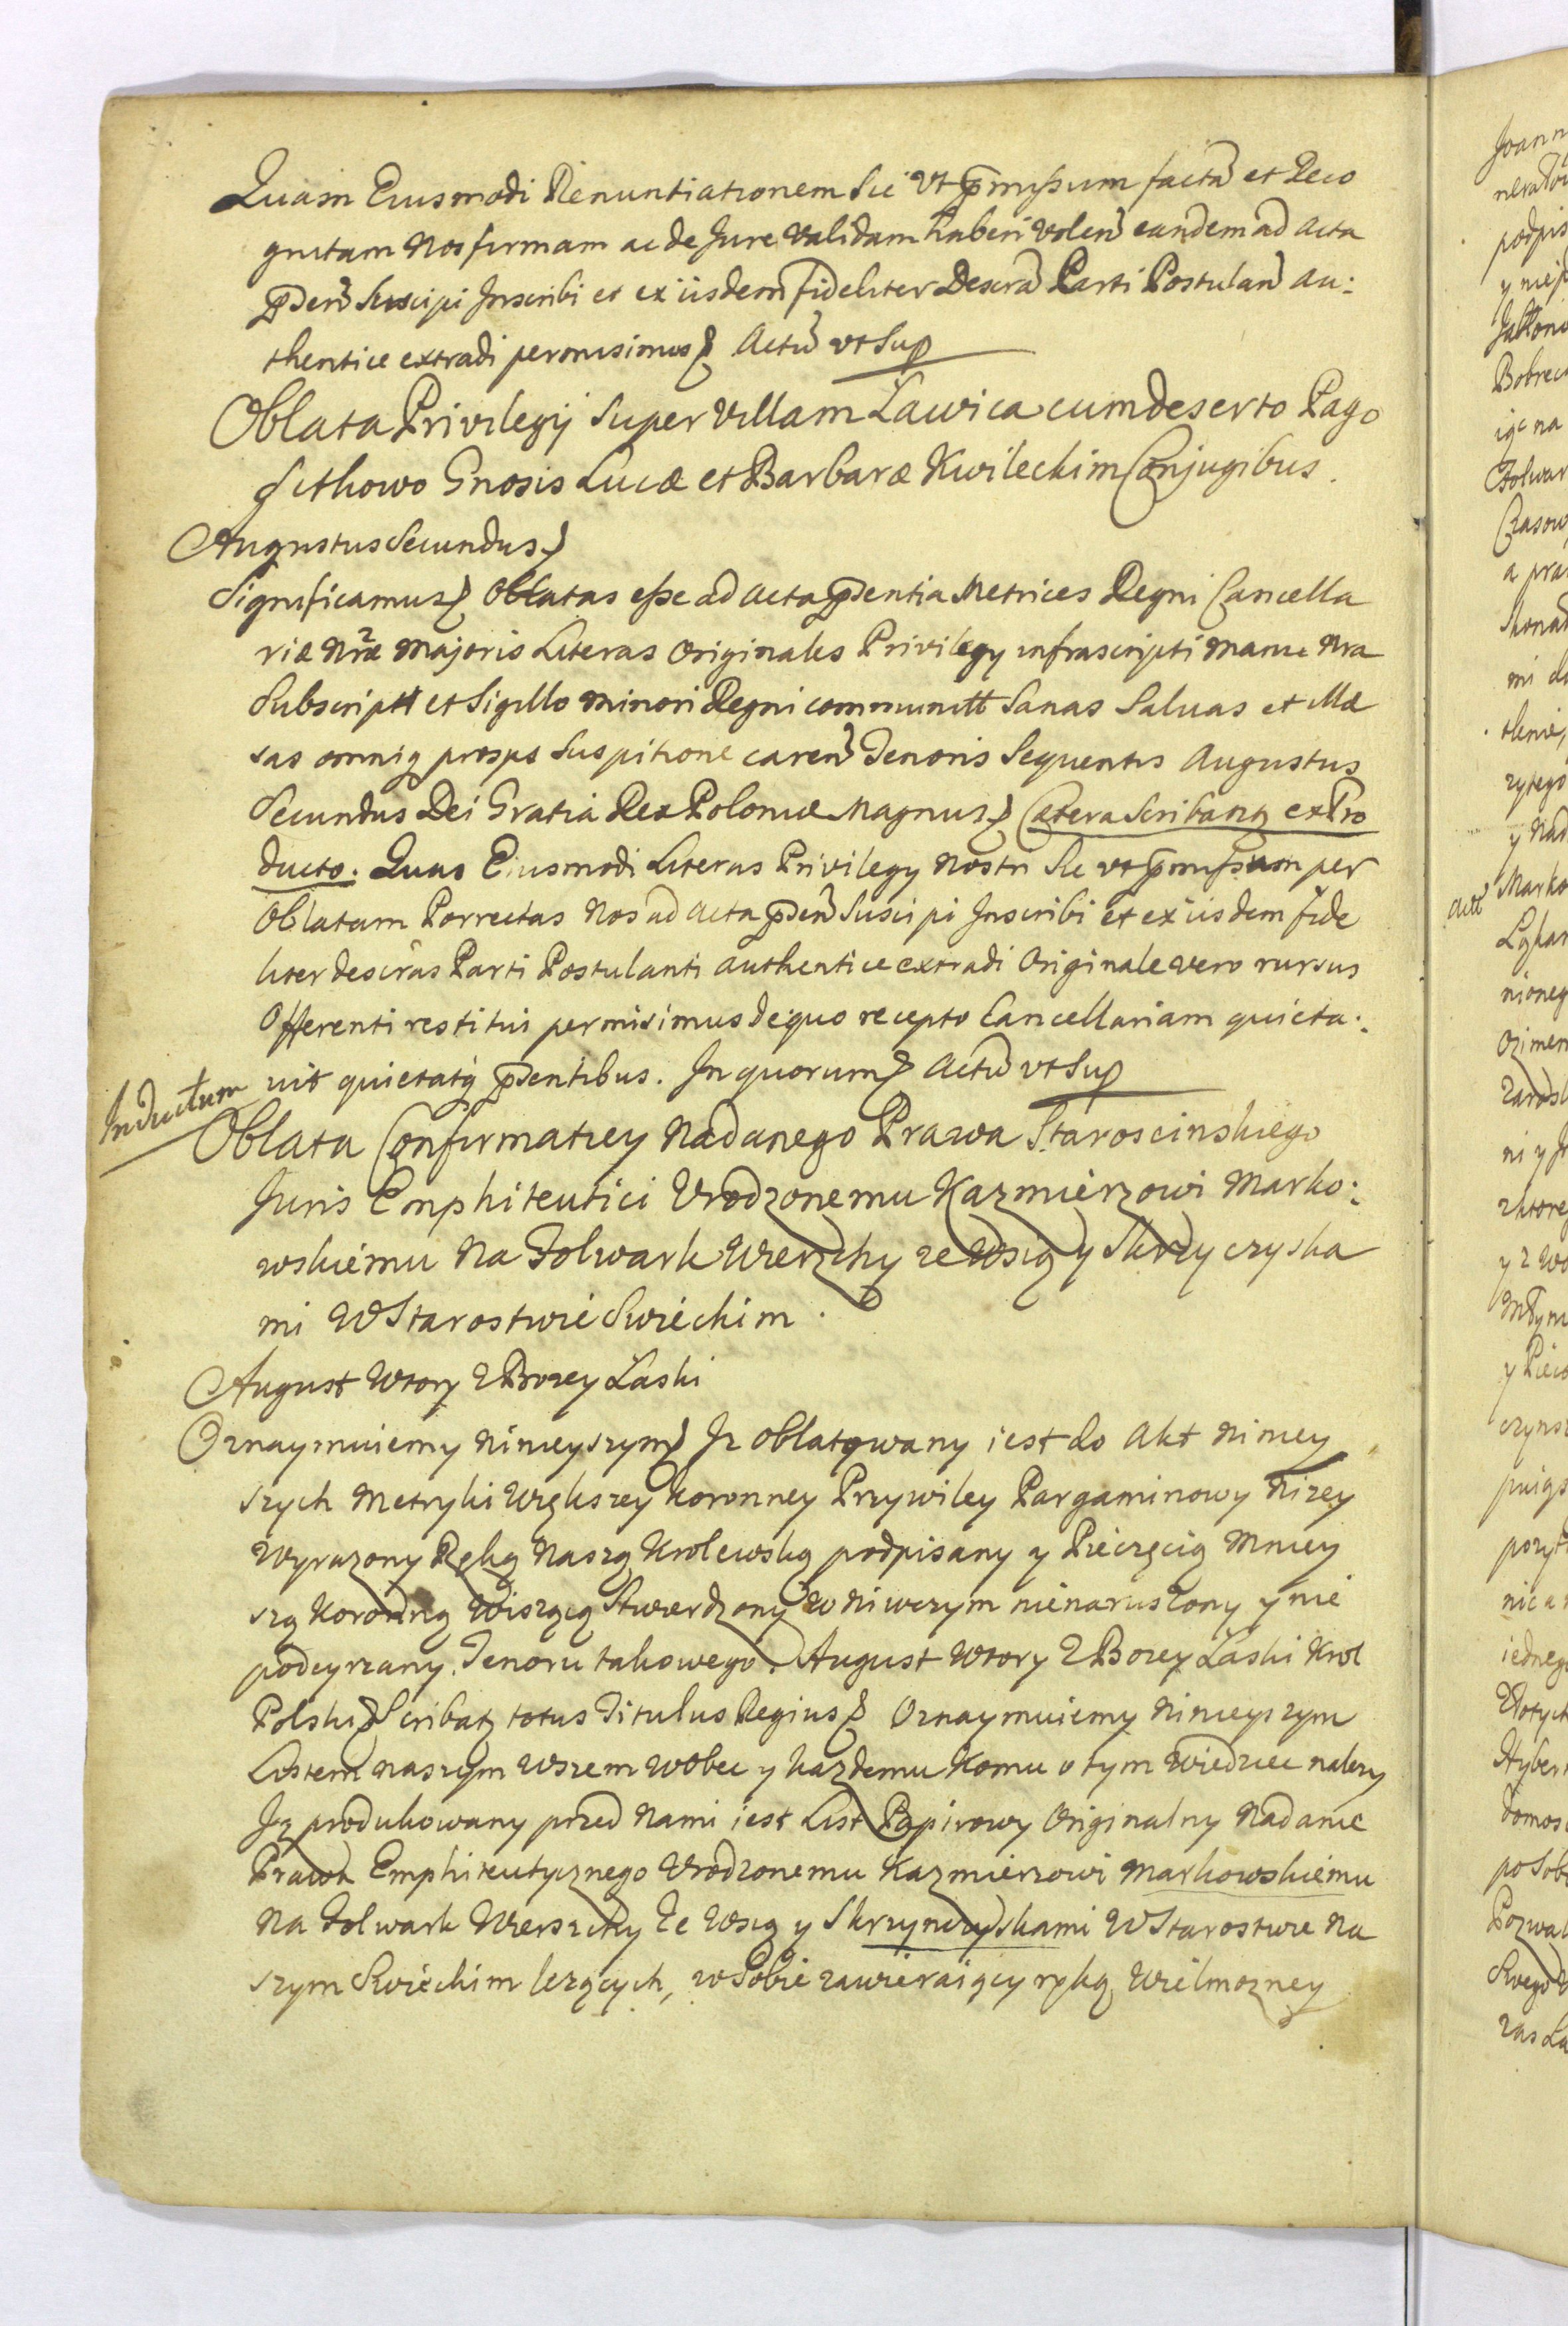 Quam Eiusmodi Renuntiationem Sic vt p̄mißum factā et Reco
gnitam Nos firmam ac de Jure validam haberi volen̄ eandem ad acta
p̄den̄ Suscipi Inscribi et ex iisdem fideliter Descrā Parti Postulan̄ au:
thentice extradi permisimus Actū vt Sup
Oblata Privilegij Super Villam Ławica cum deserto Pago
Sithowo Gnosis Lucæ et Barbaræ Kwileckim Conjugibus.
Augustus Secundus
Significamus Oblatas eße ad acta p̄dentia Metrices Regni Cancella
riæ Nræ Majoris Literas Originales Privilegy infrascripti manu Nra
Subscriptt et Sigillo minori Regni communitt Sanas Saluas et illæ
sas omniq prosps Suspitione caren̄ Tenoris Sequentis Augustus
Secundus Dei Gratia Rex Poloniæ Magnus Cætera Scribantq ex Pro
ducto. Quas Eiusmodi Literas Privilegy Nostri Sic vt p̄mißum per
Oblatam Porrectas Nos ad acta p̄den̄ Suscipi Inscribi et ex iisdem fide
liter descrās Parti Postulanti authentice extradi Originale vero rursus
Offerenti restitui permisimus de quo recepto Cancellariam quieta:
uit quietatq p̄dentibus. In quorum Actū vt Sup
Inductum
Oblata Confirmatiey Nadanego Prawa Staroscinskiego
Juris Emphiteutici Vrodzonemu Kazmierzowi Marko:
wskiemu Na Folwark Wierzchy ze Wsią y Skrzyczyska
mi W Starostwie Swieckim.
August Wtory Z Bozey Łaski
Oznaymuiemy Ninieyszym Iz oblatowany iest do Akt Niniey
szych Metryki Większey Koronney Przywiley Pargaminowy Nizey
Wyrazony Ręką Naszą Krolewską podpisany y Pieczęcią Mniey
szą Koronną Wiszącą Stwierdzony w niwczym nienaruszony y nie
podeyrzany. Tenoru takowego. August Wtory Z Bozey Łaski Krol
Polski Scribatq totus Titulus Regius Oznaymuiemy Ninieyszym
Listem naszym Wszem wobec y kazdemu Komu o tym wiedziec nalezy
Iz produkowany przed Nami iest List Papirowy Originalny Nadanie
Prawa Emphiteutycznego Vrodzonemu Kazmierzowi Markowskiemu
Na Folwark Wierszchy Ze Wsią y Skrzynczyskami W Starostwie Na
szym Swieckim lezących, w Sobie zawieraiący ręką Wielmozney